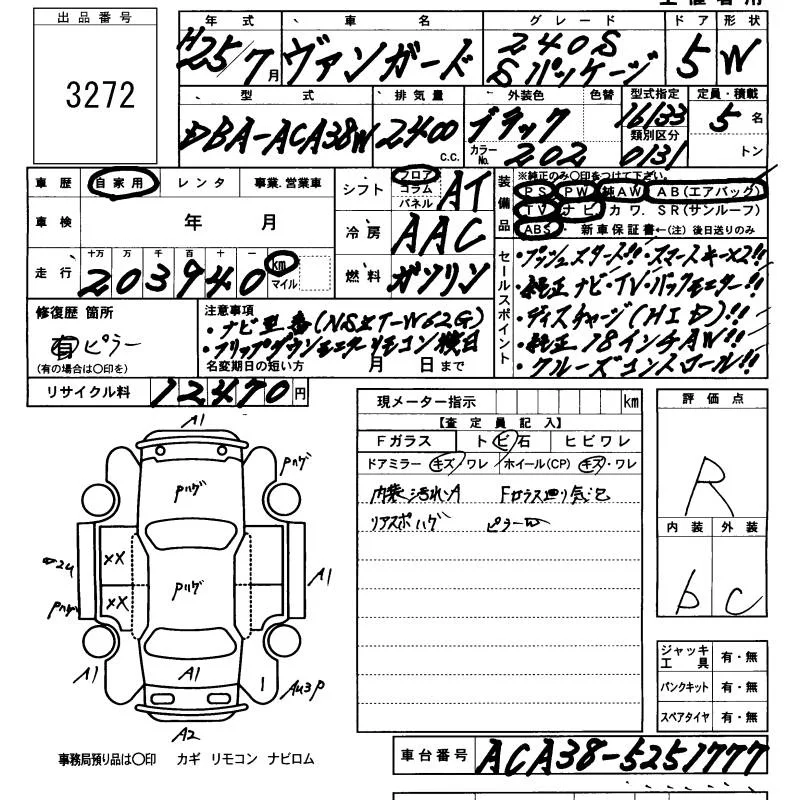 出品番号
3272
年式 車名 グレード ドア 形状
H25/7月 ヴァンガード 240S Sパッケージ 5 W
型式 排気量 外装色 色替 型式指定 定員・積載
DBA-ACA38W 2400 c.c. ブラック 16133 5名
カラーNo. 202 類別区分 0131 トン
車歴 自家用 レンタ 事業.営業車
車検 年 月
走行 十万 万 千 百 十 一
203940 km マイル
シフト フロア コラム パネル AT
冷房 AAC
燃料 ガソリン
装備品 ※純正のみ〇印をつけて下さい。
PS PW 純AW AB(エアバッグ)
TV ナビ カワ. SR(サンルーフ)
ABS ・ 新車保証書←(注)後日送りのみ
セールスポイント
・プッシュスタート!!・スマートキー×2!!
・純正ナビ・TV・バックモニター!!
・ディスチャージ(HID)!!
・純正18インチAW!!
・クルーズコントロール!!
修復歴 箇所
有 ピラー
(有の場合は〇印を)
注意事項
・ナビ型番(NSZT-W62G)
・フリップダウンモニターリモコン後日
名変期日の短い方 月 日まで
リサイクル料 12470円
現メーター指示 km
【査定員記入】
Fガラス トビ石 ヒビワレ
ドアミラー キズ/ワレ ホイール(CP) キズ・ワレ
内装汚れ、A Fガラス廻り
リアスポハゲ ピラーW
評価点
R
内装 外装
b C
ジャッキ工具 有・無
パンクキット 有・無
スペアタイヤ 有・無
A1
Pハゲ
Pハゲ
XX
XX
Pハゲ
A1
A1
A1
A2
事務局預り品は〇印 カギ リモコン ナビロム
車台番号 ACA38-5251777